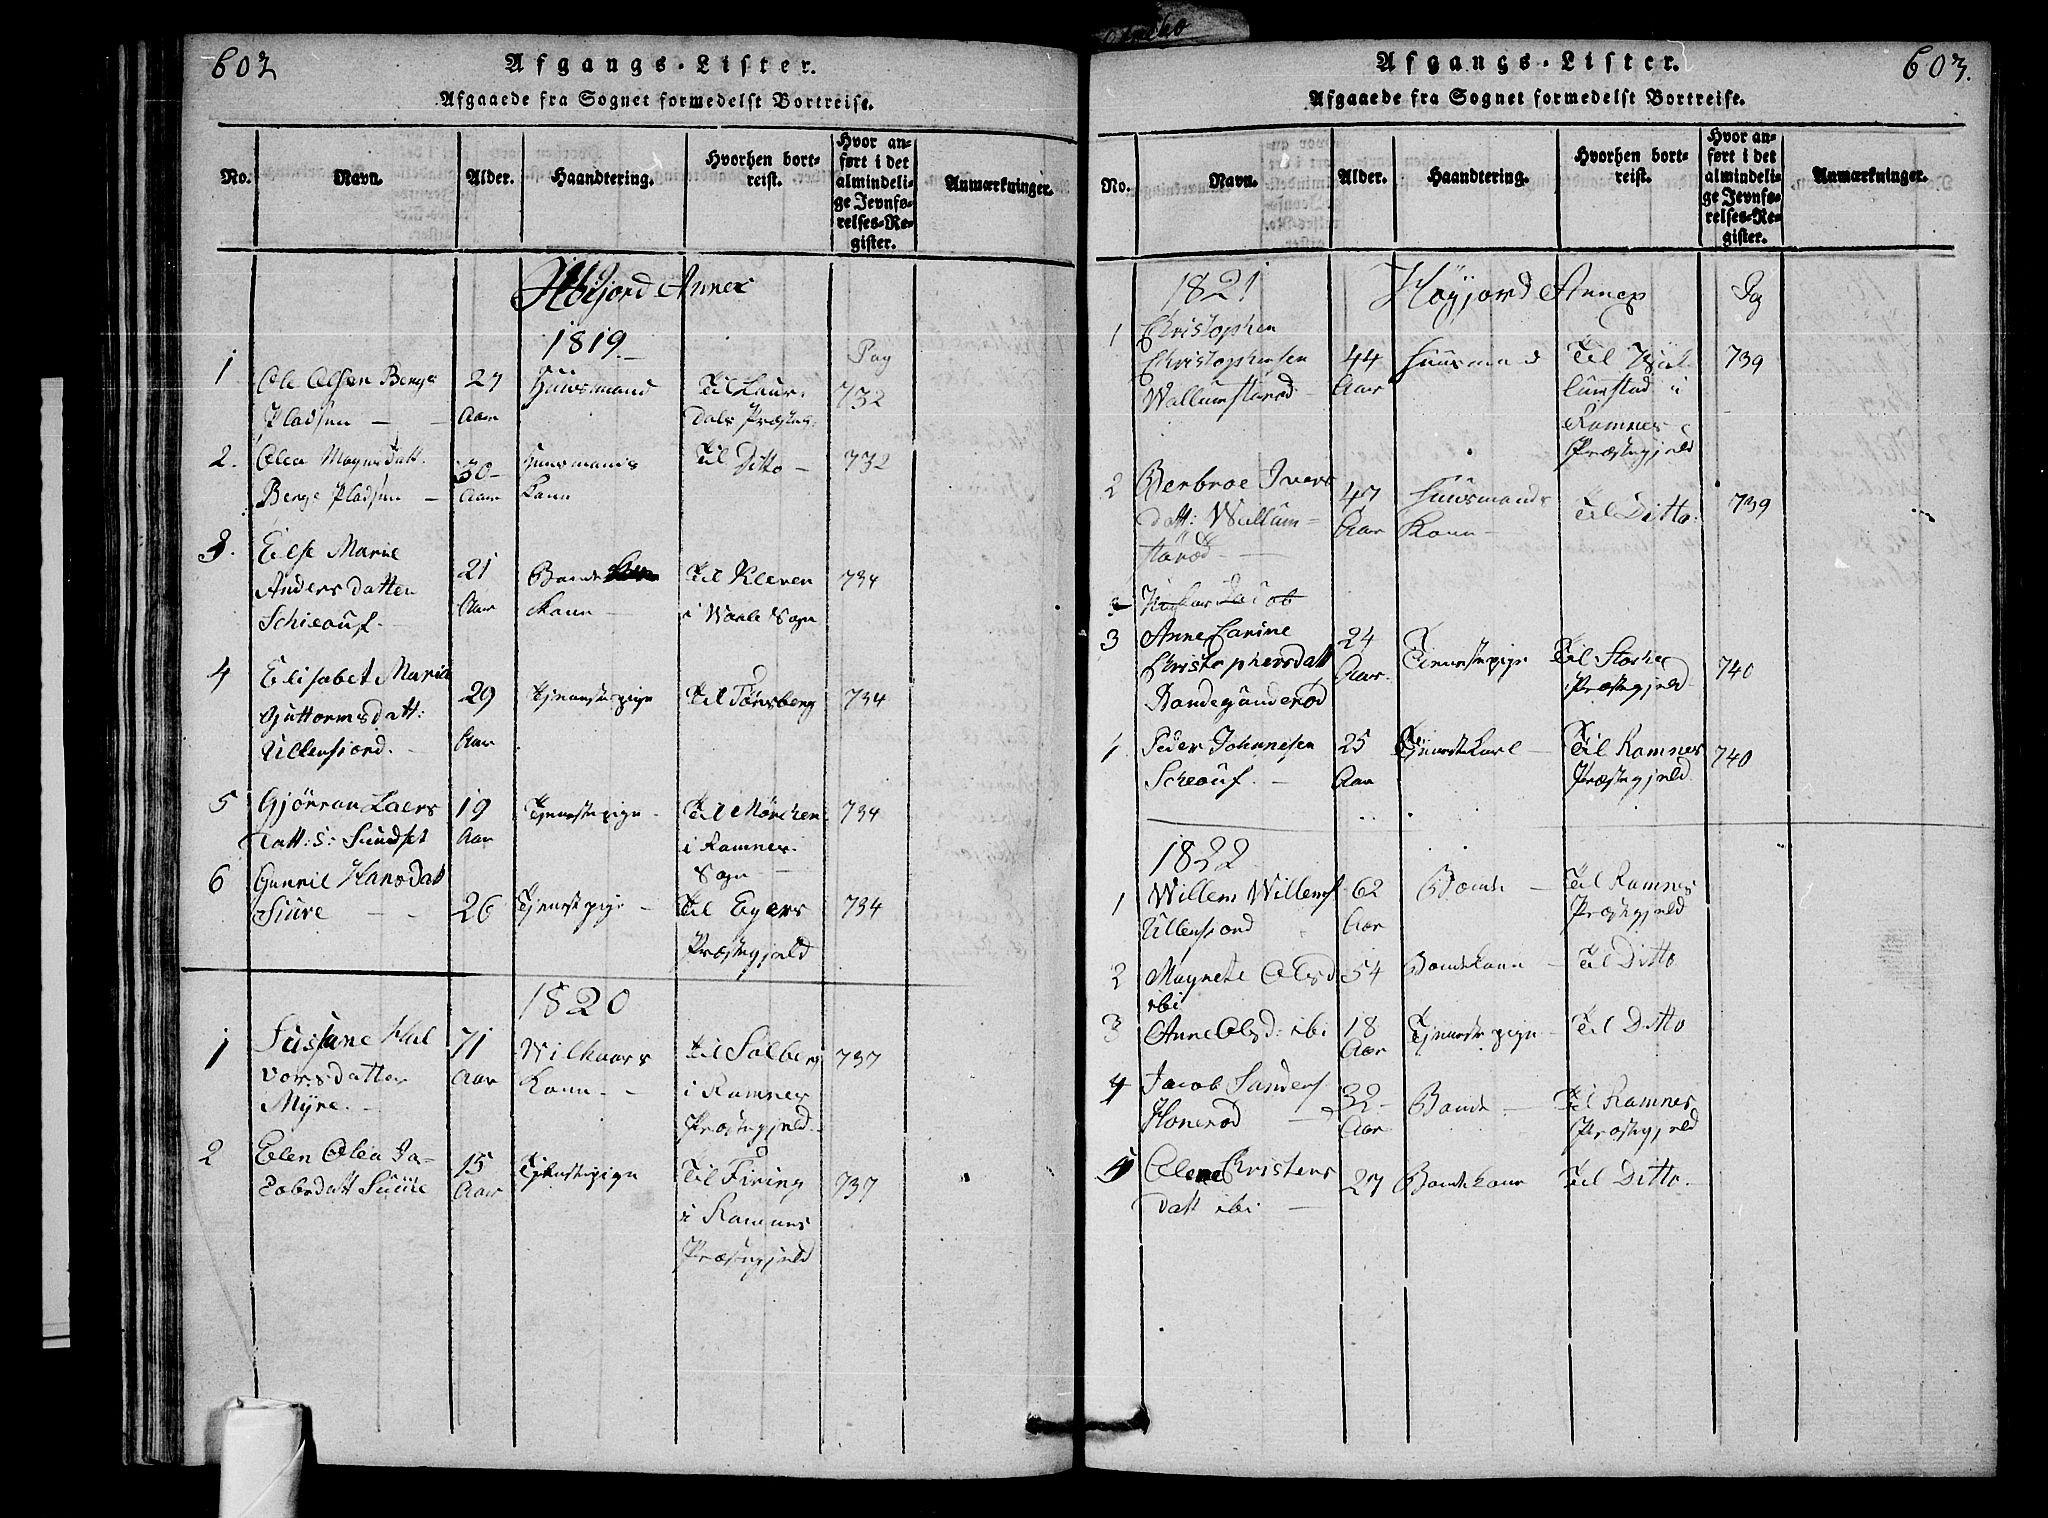 602
Afgangs-Lister.
Afgaaede fra Sognet formedelst Bortreise.
No.
Navn.
Alder.
Haandtering.
Hvorhen bort-
reist.
Hvor an-
ført i det
almindeli-
ge Jevnfø-
relses-Re-
gister.
Anmærkninger.
Høijord Annex
1819.
Pag
1
Ole Olsen Berge
Pladsen
27
Aar
Huusmand
Til Laur-
dals Præsteg.
732
2.
Olea Magnsdatt.
Berge Pladsen
30
Aar
Huusmands
Kone
Til Ditto
732
3.
Else Marie
Andersdatter
Schieauf
21
Aar
Bonde
Kone
Til Kleven
i Waale Sogn
734
4
Elisabet Maria
Guttormsdatt:
Ullensiord.
29
Aar
Tjenestepige
Til Tönsberg
734
5
Gjörran Laers
Datt: s: Sundset
19
Aar
Tjenestepige
Til Mörchen
i Ramnes
Sogn
734
6
Gunnil Hansdatt
Siure
26
Tjenestepige
Til Egers
Præstegjeld
734
1820
1
Sussane Hal
vorsdatter
Myre.
71
Aar
Wilkaars
Kone
Til Solberg
i Ramnes
Præstegjeld
737
2
Elen Olea Ja-
cobsdatt Siure
15
Aar
Tjenestepige
Til Firing
i Ramnes
Præstegjeld
737
603.
Afgangs-Lister.
Afgaaede fra Sognet formedelst Bortreise.
No.
Navn.
Alder.
Haandtering.
Hvorhen bort-
reist.
Hvor an-
ført i det
almindeli-
ge Jevnfø-
relses-Re-
gister.
Anmærkninger.
1821
Höyjord Annex
Pag
1
Christopher
Christophersen
Wallumstaröd
44
Aar
Huusmand
Til
lumstad i
Ramnes
Præstegjeld
739
2
Berbroe Ivers
datt: Wallum-
staröd
47
Aar
Huusmands
Kone
Til Ditto:
739
Jacob
3
Anne Carine
Christophersdatt
24
Aar
Tienestepige
Til Stokke
Præstegjeld
740
1
Peder Johannesen
Scheauf
25
Aar
Tjenestekarl
Til Ramnes
Præstegjeld
740
1822
1
Willem Willems
Ullensiord
62
Aar
Bonde
Til Ramnes
Præstegjeld
2
Magnete Olsd
ibi
54
Bondekone
Til Ditto
3
Anne Olsd: ibi
18
Aar
Tjenestepige
Til Ditto
4
Jacob Sanders
Honeröd
32
Aar
Bonde
Til Ramnes
Præstegjeld
5
Olene Christens
datt ibi
27
Bondekone
Til Ditto